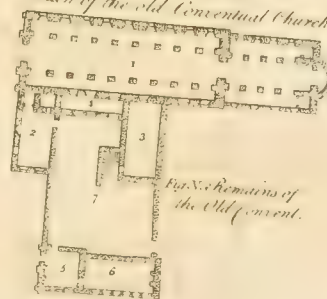 of the Old Conventual Church
1
4
2
3
Fig. V. Remains of
the Old Convent.
7
5
6